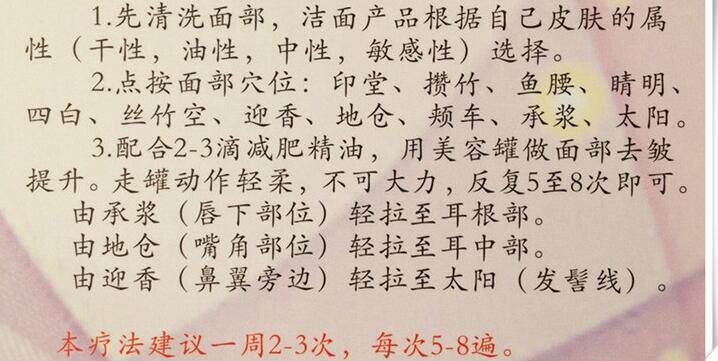 1.先清洗面部，洁面产品根据自己皮肤的属
性（干性，油性，中性，敏感性）选择。
2.点按面部穴位：印堂、攒竹、鱼腰、睛明、
四白、丝竹空、迎香、地仓、颊车、承浆、太阳。
3.配合2-3滴减肥精油，用美容罐做面部去皱
提升。走罐动作轻柔，不可大力，反复5至8次即可。
由承浆（唇下部位）轻拉至耳根部。
由地仓（嘴角部位）轻拉至耳中部。
由迎香（鼻翼旁边）轻拉至太阳（发髻线）。
本疗法建议一周2-3次，每次5-8遍。